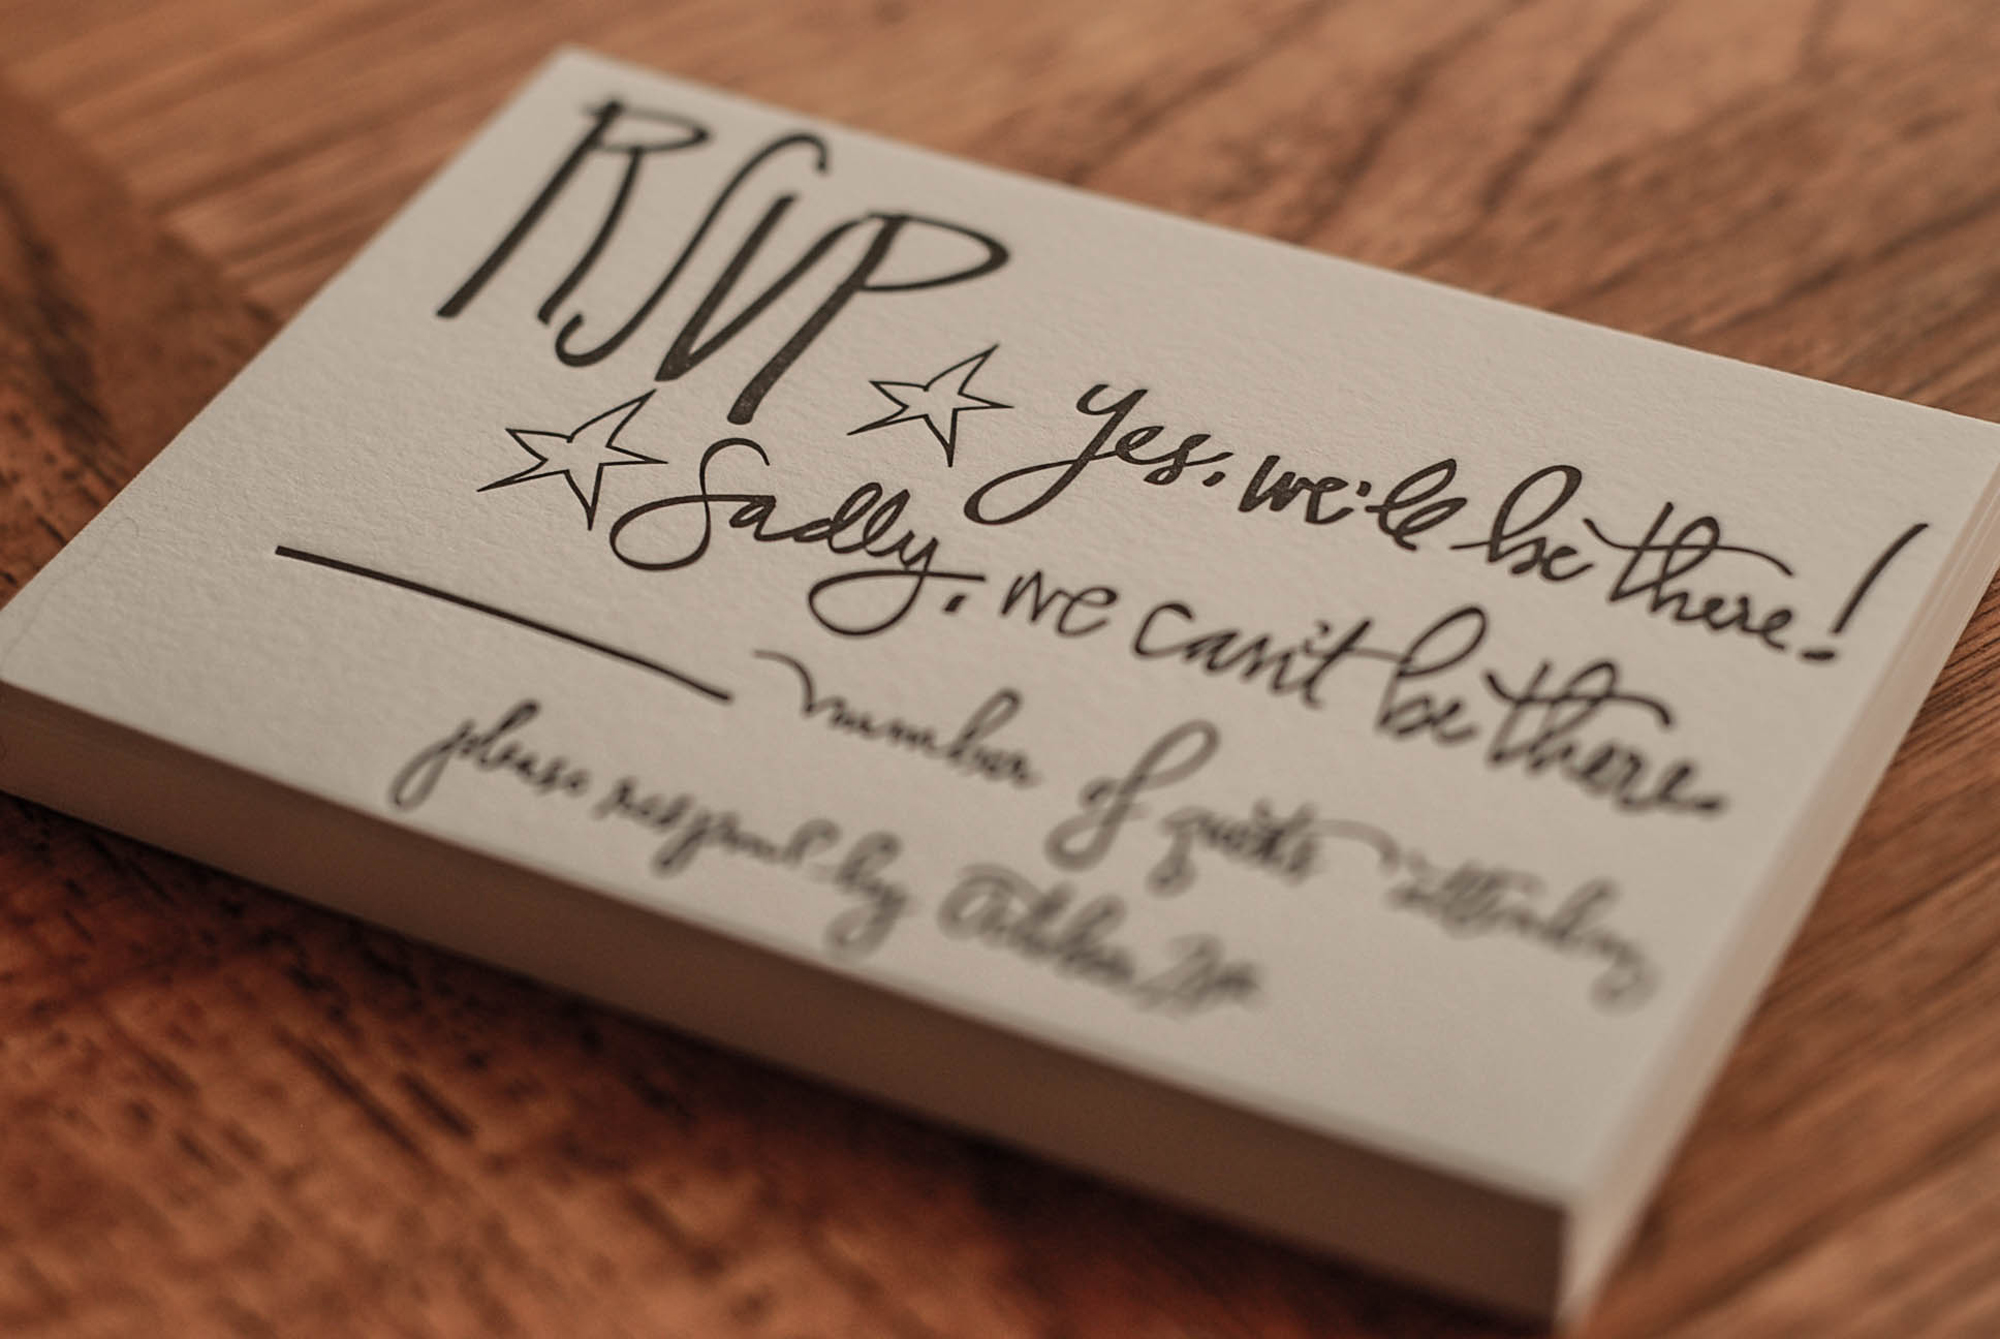 RSVP
Yes, we'll be there!
Sadly, we can't be there.
number of guests attending
please respond by October